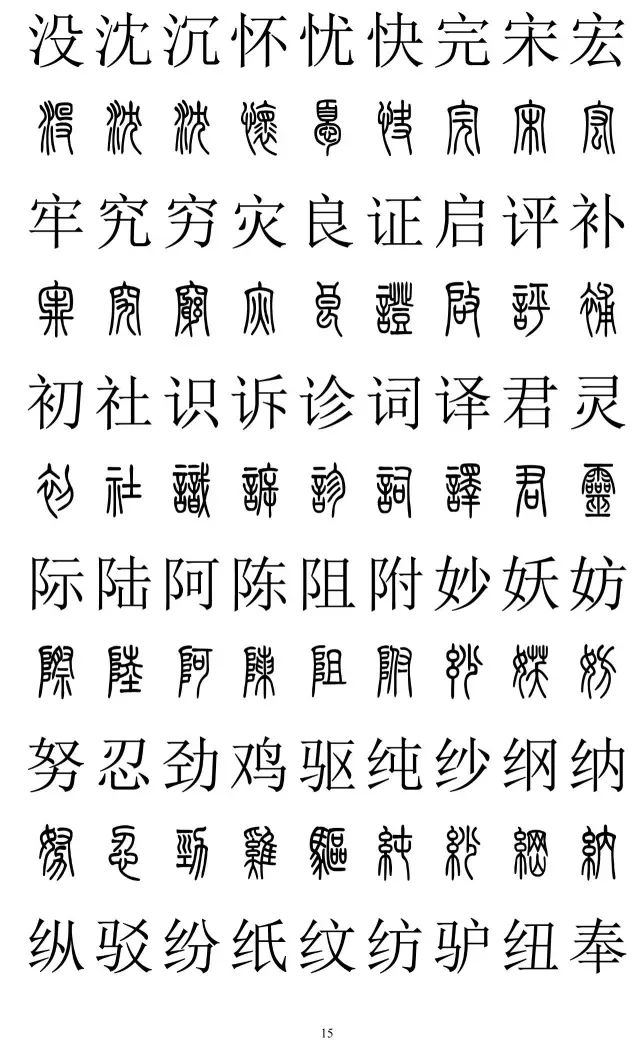 没沈沉怀忧快完宋宏
沒沈沈懷㥑快完宋宏
牢究穷灾良证启评补
牢究竆灾良證啟評補
初社识诉诊词译君灵
初社識訴診詞譯君靈
际陆阿陈阻附妙妖妨
際陸阿陳阻附妙媄妨
努忍劲鸡驱纯纱纲纳
努忍勁雞驅純紗綱納
纵驳纷纸纹纺驴纽奉
15